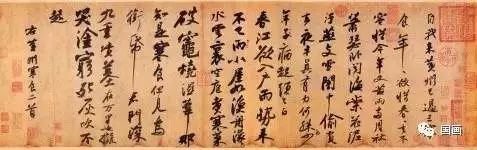 自我來黃州已過三寒
食年年欲惜春春去不
容惜今年又苦雨兩月秋
蕭瑟臥聞海棠花泥
汙燕支雪闇中偷負
去夜半真有力何殊少
年子病起頭已白
春江欲入戶雨勢來
不已雨小屋如漁舟濛濛
水雲裏空庖煮寒菜
破竈燒濕葦那
知是寒食但見烏
銜帋君門深
九重墳墓在万里也擬
哭塗窮死灰吹不
起
右黃州寒食二首
国画